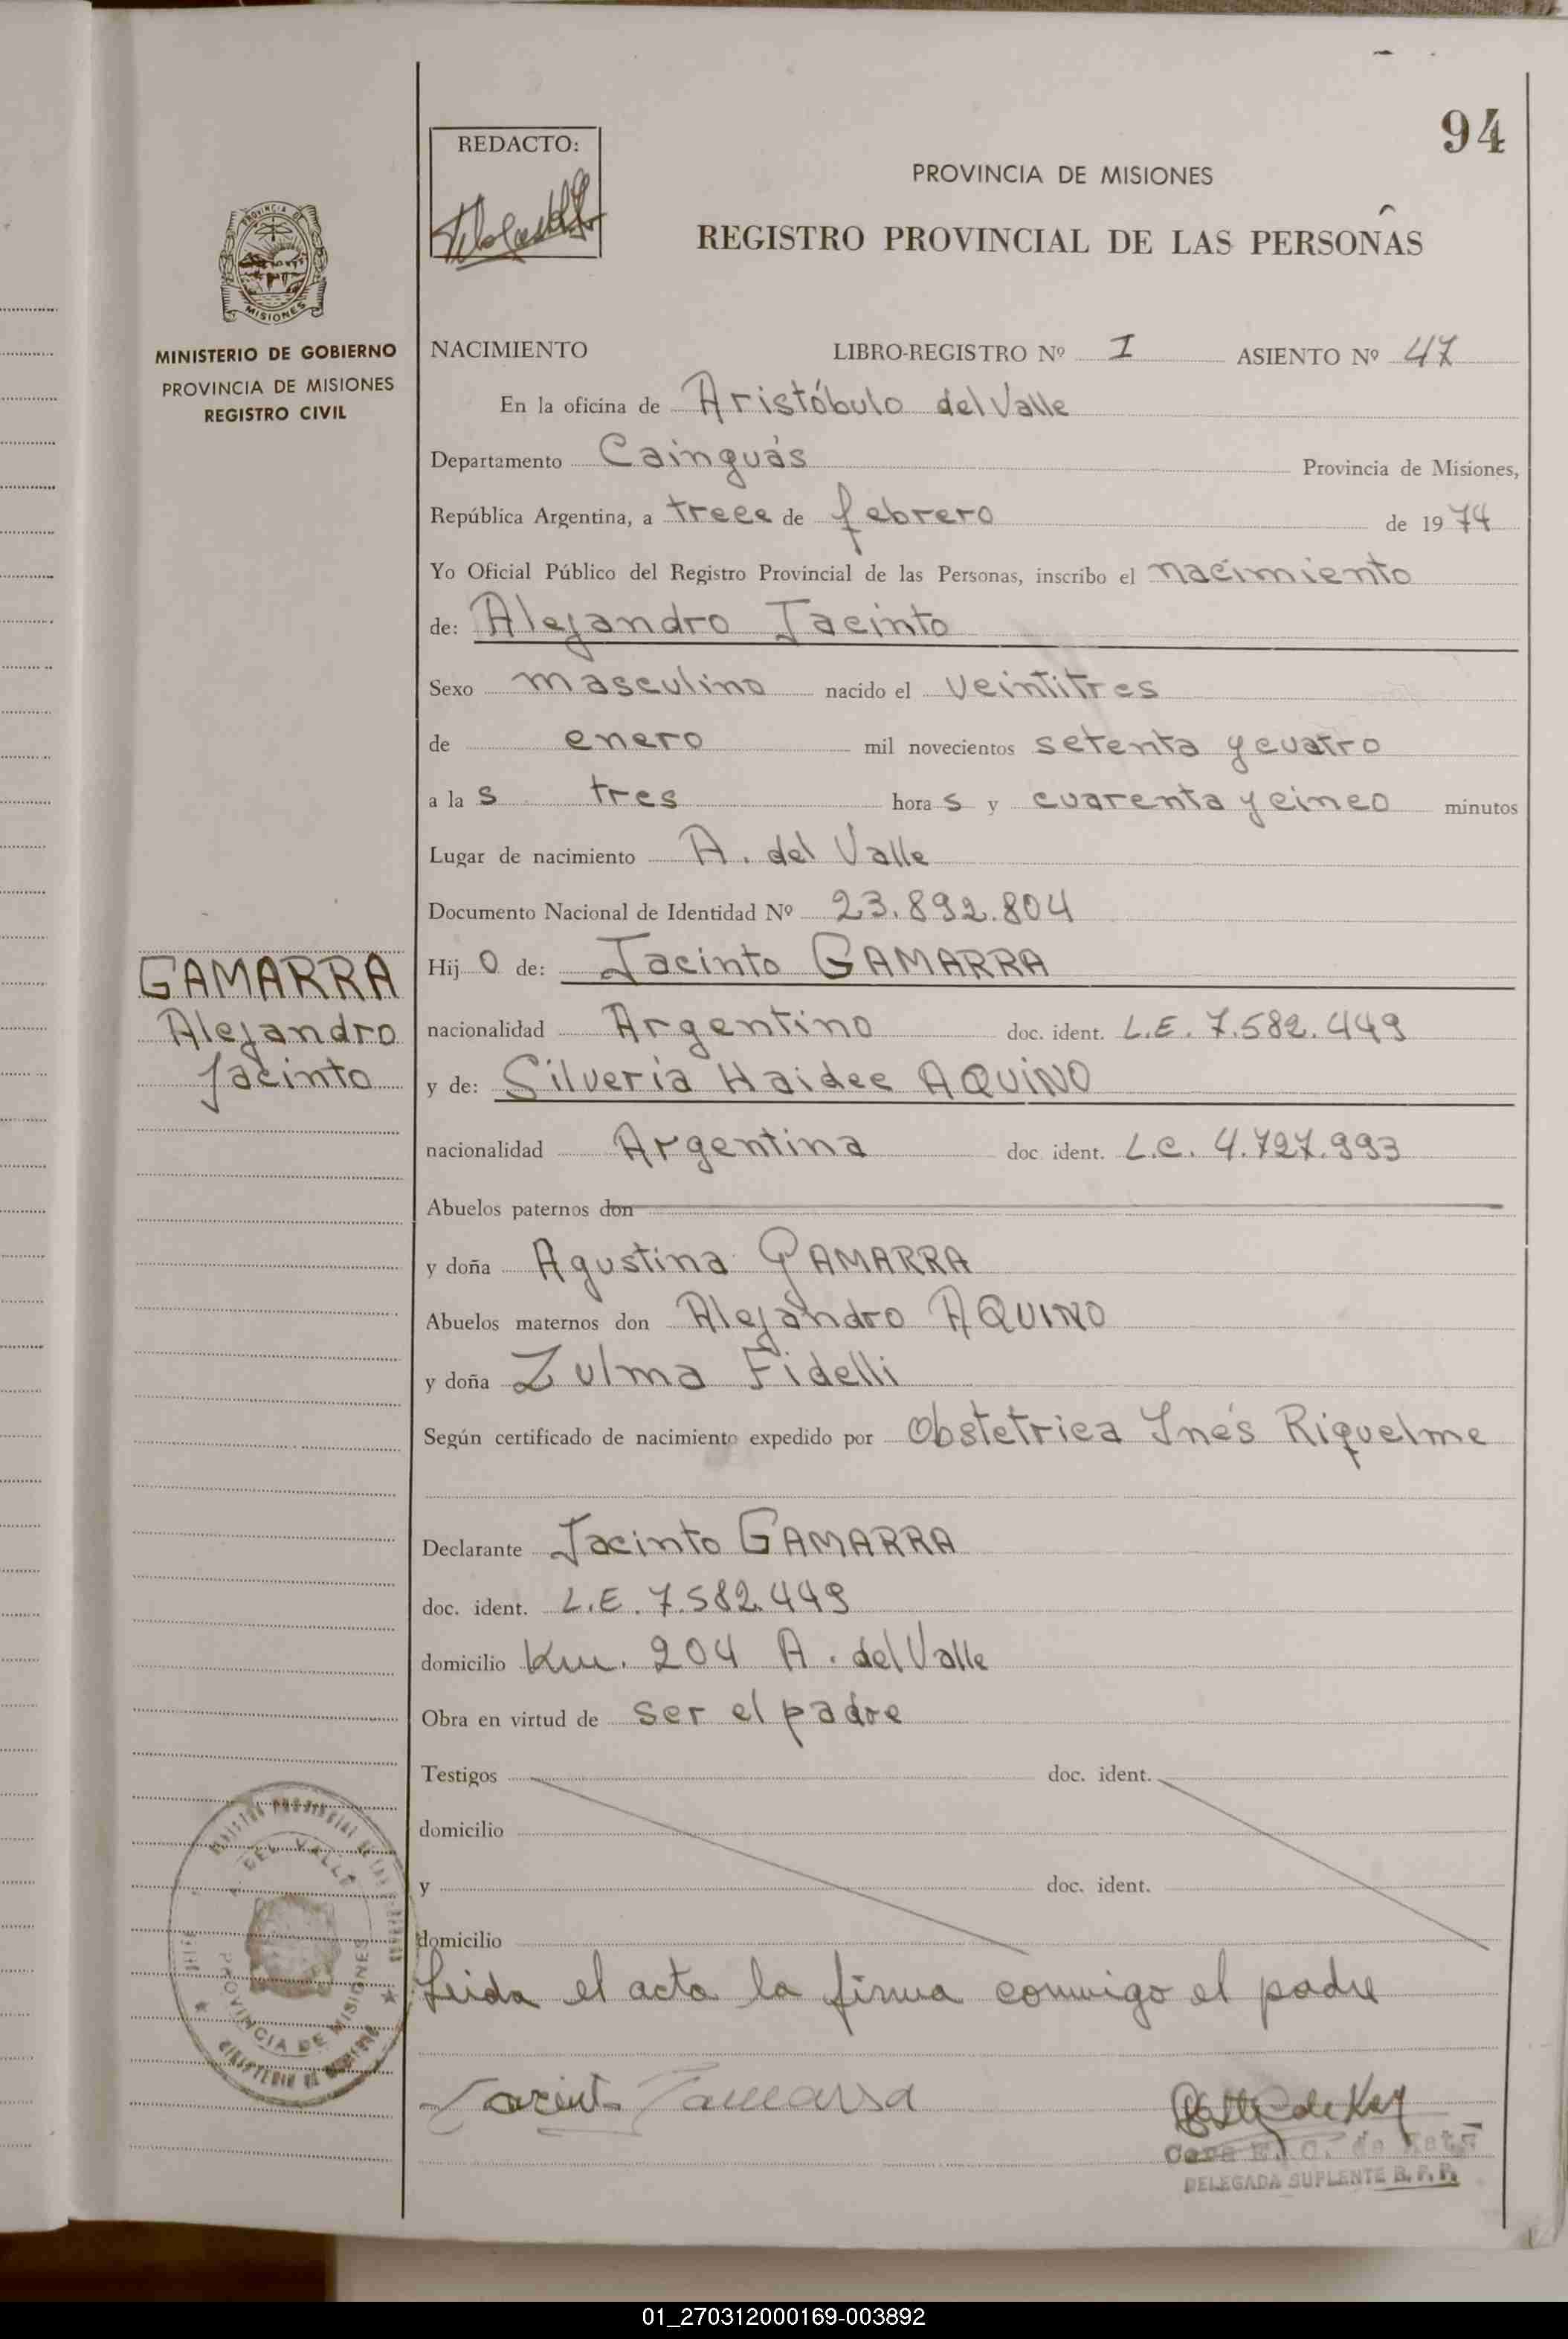 94
REDACTO:
PROVINCIA DE MISIONES
REGISTRO PROVINCIAL DE LAS PERSONAS
MISIONES
MINISTERIO DE GOBIERNO
PROVINCIA DE MISIONES
REGISTRO CIVIL
NACIMIENTO LIBRO-REGISTRO Nº I ASIENTO Nº 47
En la oficina de Aristóbulo del Valle
Departamento Cainguás Provincia de Misiones,
República Argentina, a trece de febrero de 1974
Yo Oficial Público del Registro Provincial de las Personas, inscribo el nacimiento
de: Alejandro Jacinto
Sexo masculino nacido el veintitres
de enero mil novecientos setenta y cuatro
a la s tres hora s y cuarenta y cinco minutos
Lugar de nacimiento A. del Valle
Documento Nacional de Identidad Nº 23.892.804
GAMARRA
Alejandro
Jacinto
Hij o de: Jacinto GAMARRA
nacionalidad Argentino doc. ident. L.E. 7.582.449
y de: Silveria Haidee AQUINO
nacionalidad Argentina doc. ident. L.C. 4.727.993
Abuelos paternos don
y doña Agustina GAMARRA
Abuelos maternos don Alejandro AQUINO
y doña Zulma Fidelli
Según certificado de nacimiento expedido por Obstetrica Inés Riquelme
Declarante Jacinto GAMARRA
doc. ident. L.E. 7.582.449
domicilio Km. 204 A. del Valle
Obra en virtud de ser el padre
Testigos doc. ident.
domicilio
y doc. ident.
domicilio
DEL VALLE
PROVINCIA DE MISIONES
Leida el acta la firma conmigo el padre
Jacinto Gamarra
DELEGADA SUPLENTE R. P. P.
01_270312000169-003892